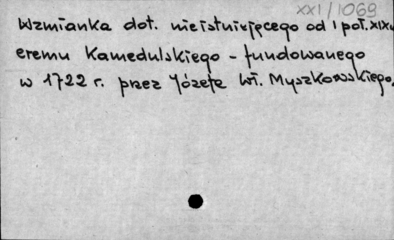 XXI/1069
Wzmianka dot. nieistniejącego od I poł. XIX w
eremu Kamedulskiego - fundowanego
w 1722 r. przez Józefa Wł. Myszkowskiego.